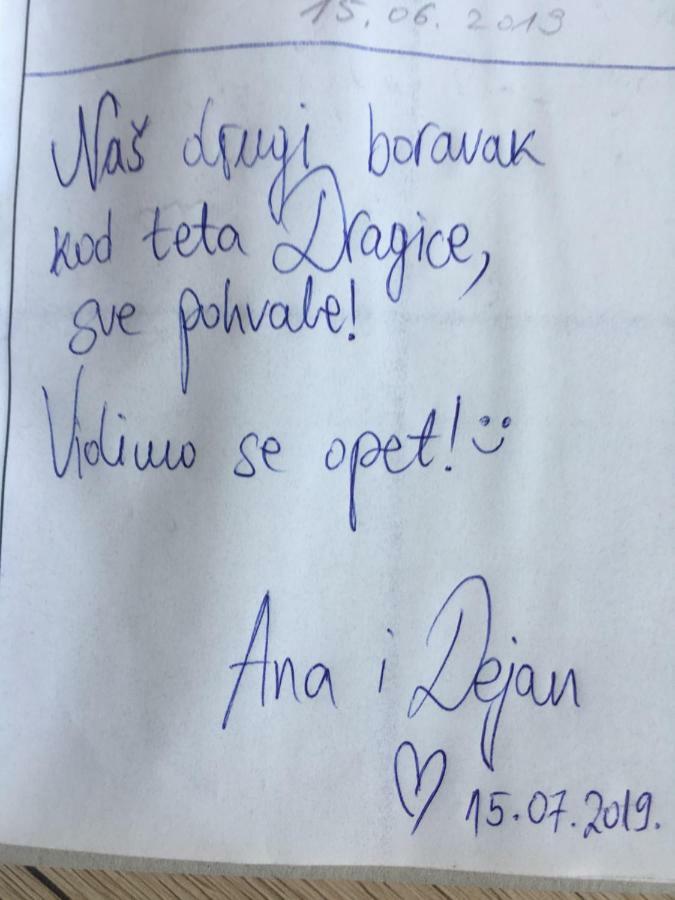 15.06.2019
Naš drugi boravak
kod teta Dragice,
sve pohvale!
Vidimo se opet! :)
Ana i Dejan
♡ 15.07.2019.